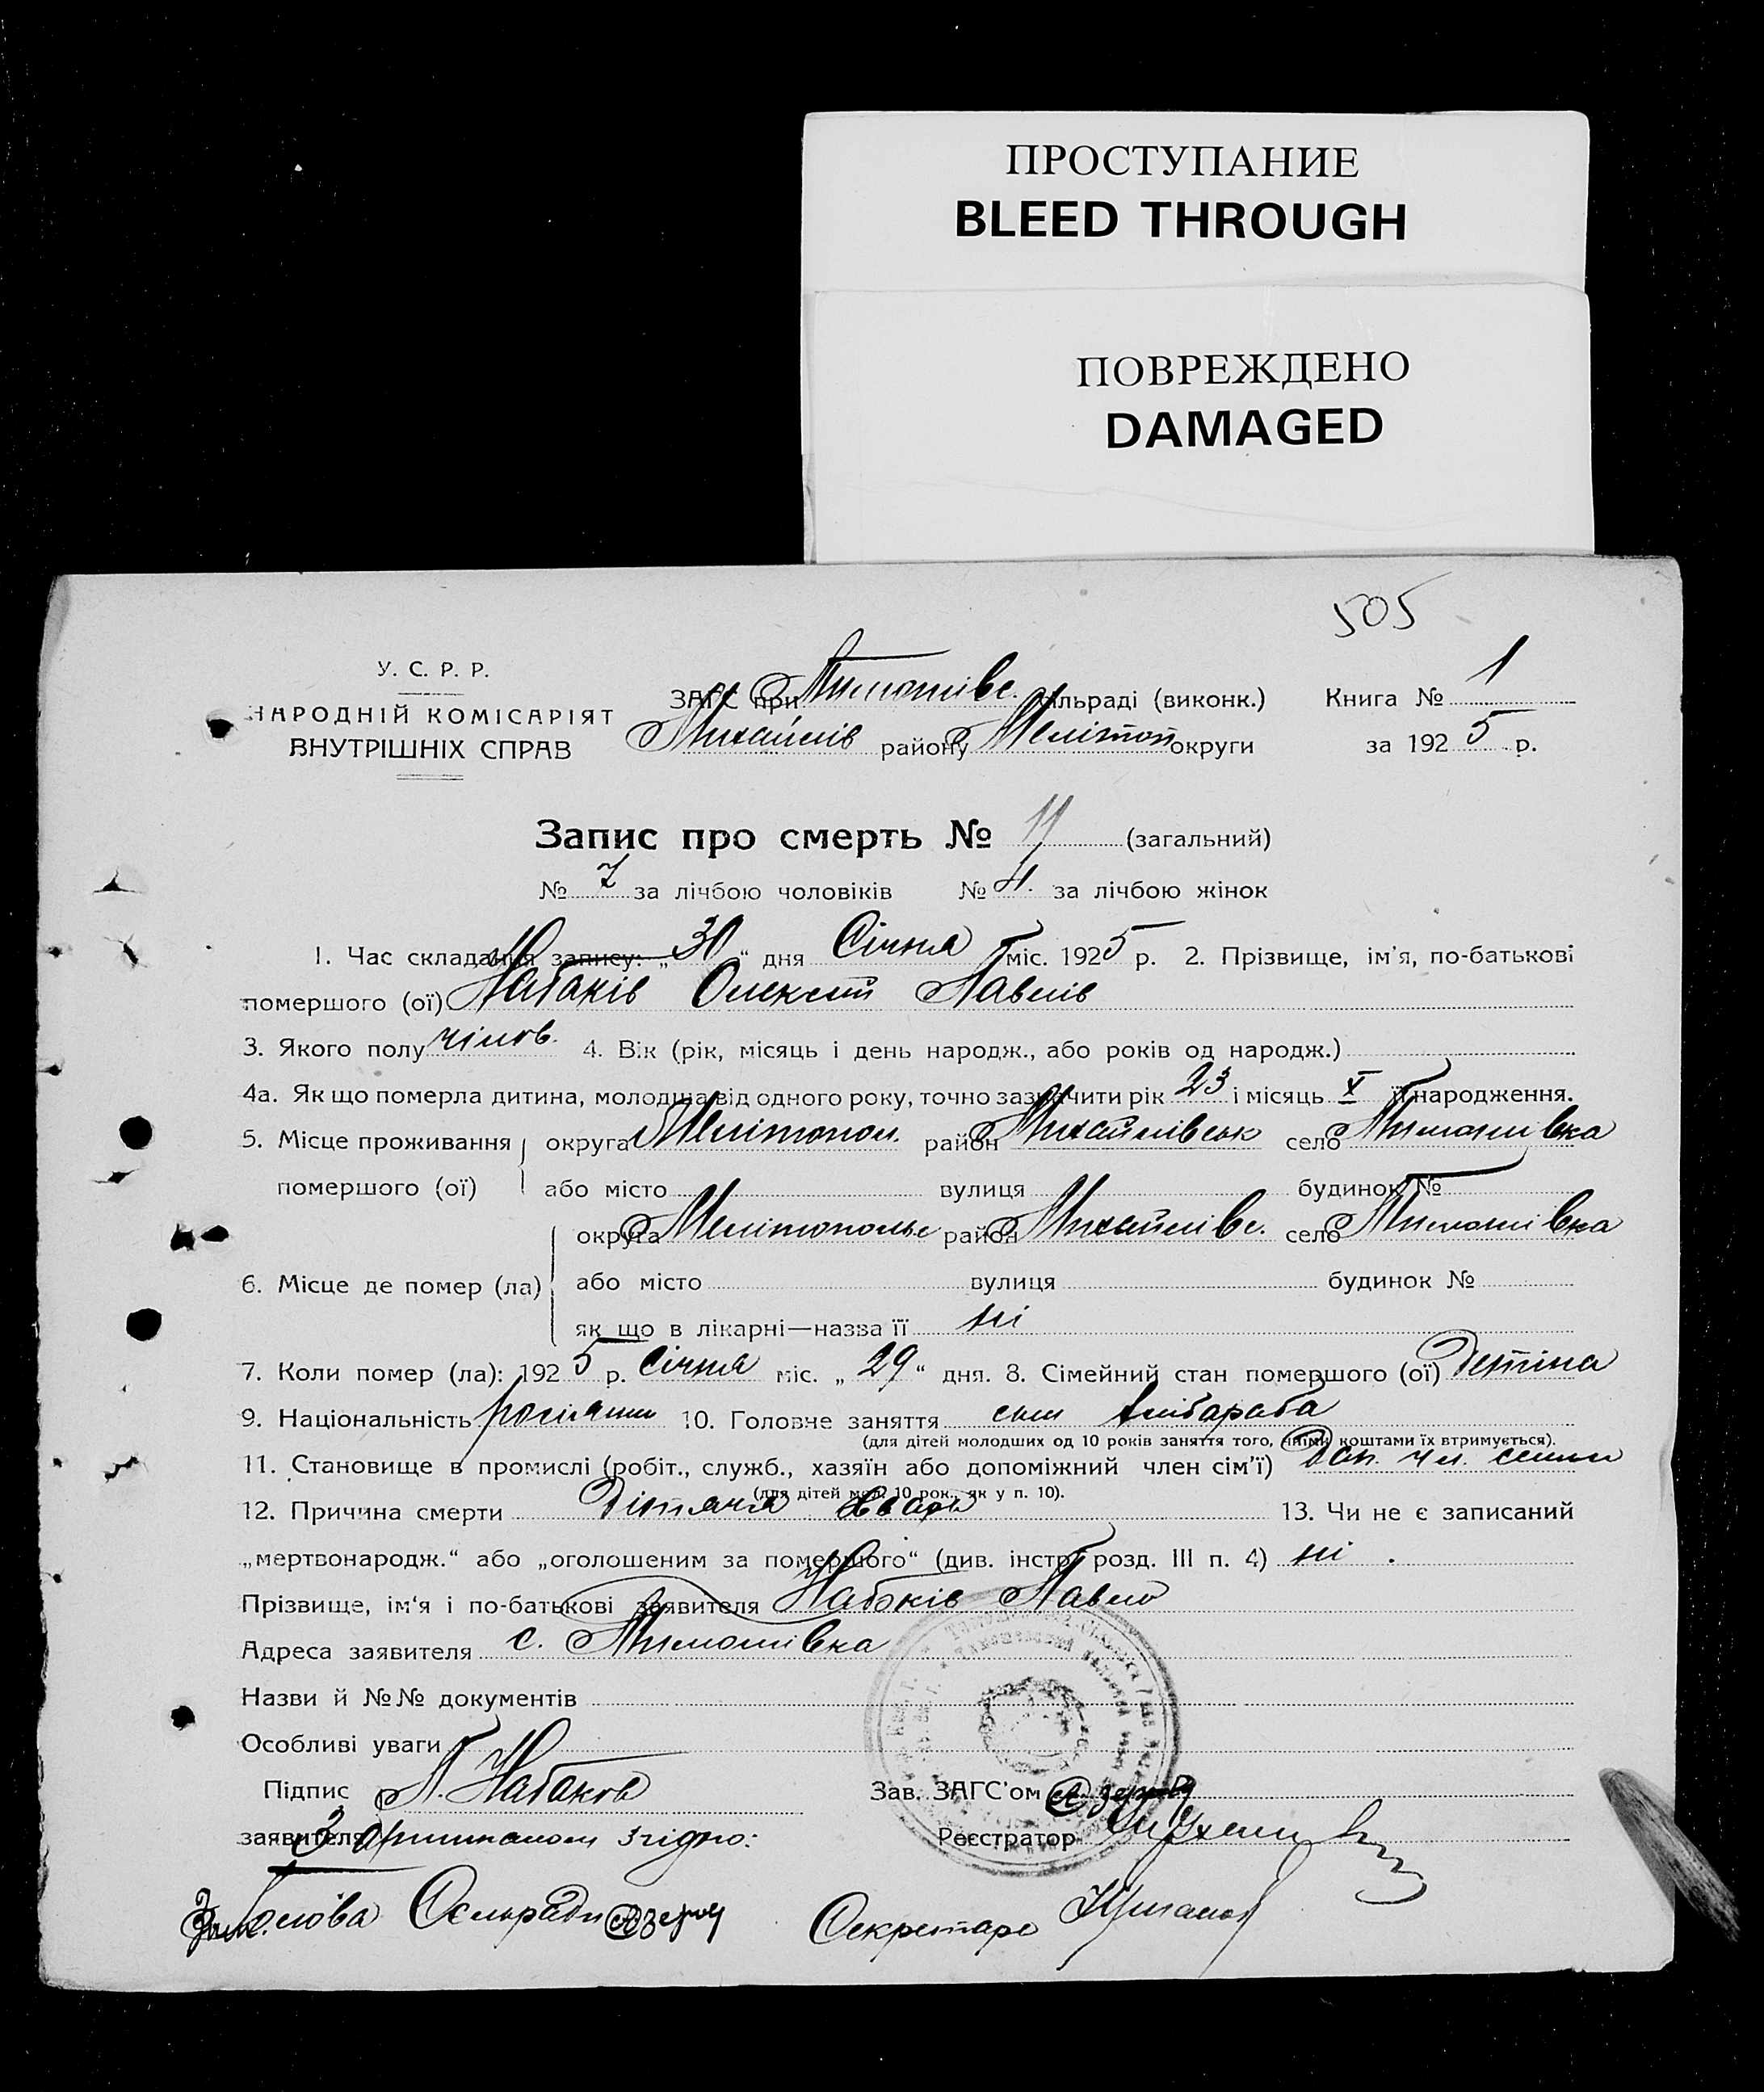 ПРОСТУПАНИЕ
BLEED THROUGH
ПОВРЕЖДЕНО
DAMAGED
505
У. С. Р. Р.
НАРОДНІЙ КОМІСАРІЯТ
ВНУТРІШНІХ СПРАВ
ЗАГС при Тимошівс. сільраді (виконк.) Книга № 1
Михайлів району Мелітоп округи за 1925 р.
Запис про смерть № 11 (загальний)
№ 7 за лічбою чоловіків № 4. за лічбою жінок
1. Час складання запису: „30“ дня Січня міс. 1925 р. 2. Прізвище, ім'я, по-батькові
помершого (ої) Набаків Олексій Павлів
3. Якого полу чілов. 4. Вік (рік, місяць і день народж., або років од народж.)
4а. Як що померла дитина, молодша від одного року, точно зазначити рік 23 і місяць X її народження.
5. Місце проживання округа Мелітопол. район Михайлівськ село Тимошівка
помершого (ої) або місто вулиця будинок №
округа Мелітопольс район Михайлівс. село Тимошівка
6. Місце де помер (ла) або місто вулиця будинок №
як що в лікарні—назва її ні
7. Коли помер (ла): 1925 р. Січня міс. „29“ дня. 8. Сімейний стан помершого (ої) Детіна
9. Національність 10. Головне заняття
(для дітей молодших од 10 років заняття того, чиїми коштами їх втримується).
11. Становище в промислі (робіт., служб., хазяїн або допоміжний член сім'ї) Доп. чл. семьи
(для дітей мол. 10 рок., як у п. 10).
12. Причина смерти Дітяча 13. Чи не є записаний
„мертвонародж.“ або „оголошеним за помершого“ (див. інстр. розд. III п. 4) ні.
Прізвище, ім'я і по-батькові заявителя Набоків Павло
Адреса заявителя с. Тимошівка
Назви й №№ документів
Особливі уваги
Підпис П. Набаков Зав. ЗАГС'ом
заявителя Реєстратор
З оригіналом згідно:
Голова Сельради Секретарь